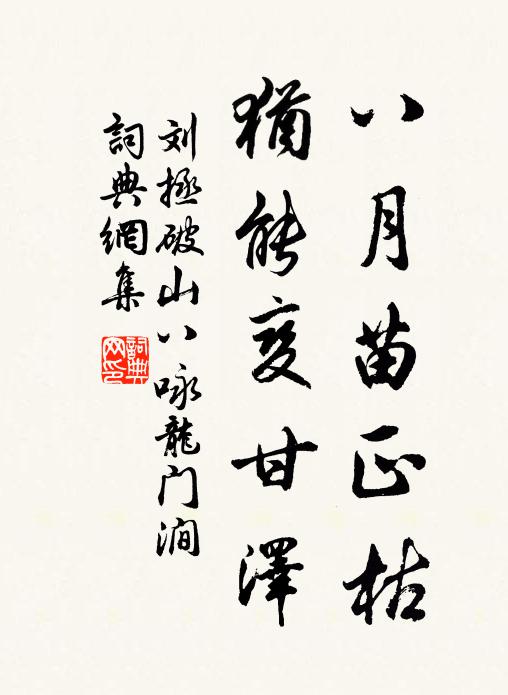 八月苗正枯
猶能变甘澤
刘拯破山八咏龍门澗
詞典網集
詞典
网印